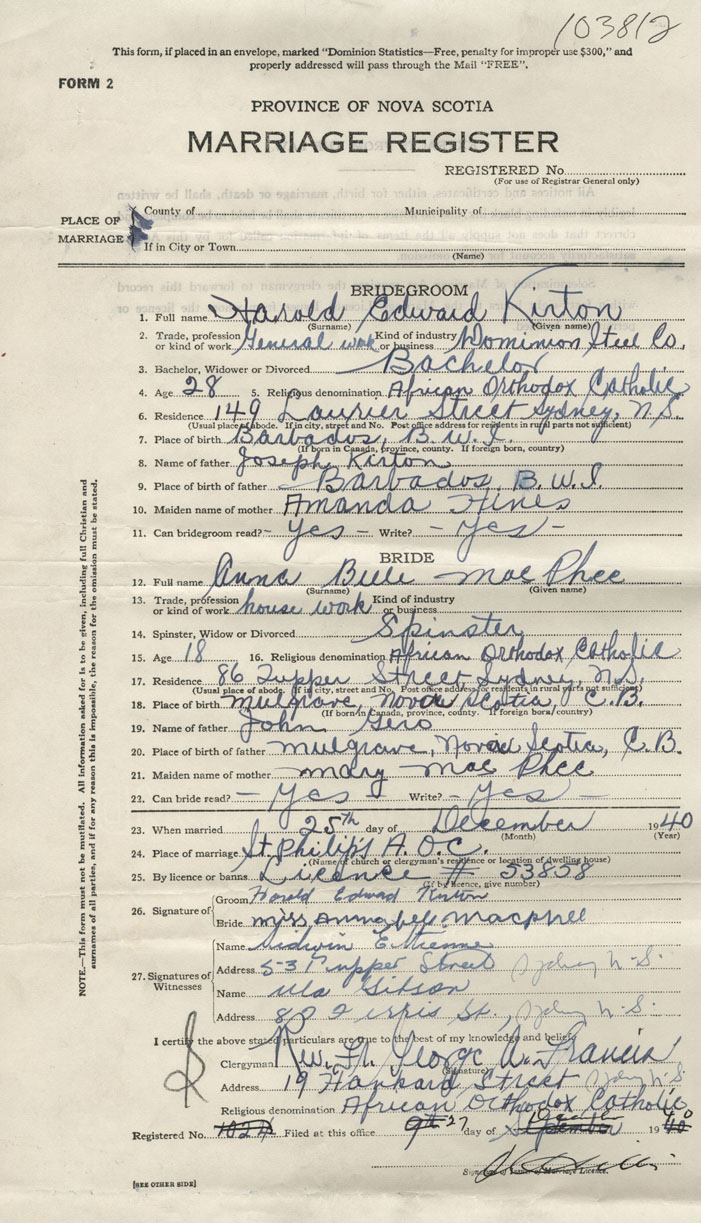 103812
This form, if placed in an envelope, marked "Dominion Statistics—Free, penalty for improper use $300," and
properly addressed will pass through the Mail "FREE".
FORM 2
PROVINCE OF NOVA SCOTIA
MARRIAGE REGISTER
REGISTERED No.
(For use of Registrar General only)
PLACE OF MARRIAGE
County of Municipality of
If in City or Town
(Name)
BRIDEGROOM
1. Full name Harold Edward Kirton
(Surname) (Given name)
2. Trade, profession or kind of work General work Kind of industry or business Dominion Steel Co.
3. Bachelor, Widower or Divorced Bachelor
4. Age 28 5. Religious denomination African Orthodox Catholic
6. Residence 149 Laurier Street Sydney, N.S.
(Usual place of abode. If in city, street and No. Post office address for residents in rural parts not sufficient)
7. Place of birth Barbados, B.W.I.
(If born in Canada, province, county. If foreign born, country)
8. Name of father Joseph Kirton
9. Place of birth of father Barbados, B.W.I.
10. Maiden name of mother Amanda Hines
11. Can bridegroom read? - Yes - Write? - Yes -
BRIDE
12. Full name Anna Bell Mac Phee
(Surname) (Given name)
13. Trade, profession or kind of work house work Kind of industry or business
14. Spinster, Widow or Divorced Spinster
15. Age 18 16. Religious denomination African Orthodox Catholic
17. Residence 86 Tupper Street Sydney, N.S.
(Usual place of abode. If in city, street and No. Post office address for residents in rural parts not sufficient)
18. Place of birth Mulgrave, Nova Scotia, C.B.
(If born in Canada, province, county. If foreign born, country)
19. Name of father John Gero
20. Place of birth of father Mulgrave, Nova Scotia, C.B.
21. Maiden name of mother Mary Mac Phee
22. Can bride read? - Yes - Write? - Yes -
23. When married 25th day of December 1940
(Month) (Year)
24. Place of marriage St. Philip's A.O.C.
(Name of church or clergyman's residence or location of dwelling house)
25. By licence or banns Licence # 53858
(If by licence, give number)
26. Signature of
Groom Harold Edward Kirton
Bride Miss Annabell Macphee
27. Signatures of Witnesses
Name Edwin Etienne
Address 53 Tupper Street Sydney N.S.
Name Gibson
Address St., Sydney N.S.
I certify the above stated particulars are true to the best of my knowledge and belief.
Clergyman Rev. Fr. George A. Francis
(Signature)
Address 19 Hankard Street Sydney N.S.
Religious denomination African Orthodox Catholic
Registered No. Filed at this office 27 day of 1940
Signature of Issuer of Marriage Licence.
[SEE OTHER SIDE]
NOTE.—This form must not be mutilated. All information asked for is to be given, including full Christian and
surnames of all parties, and if for any reason this is impossible, the reason for the omission must be stated.